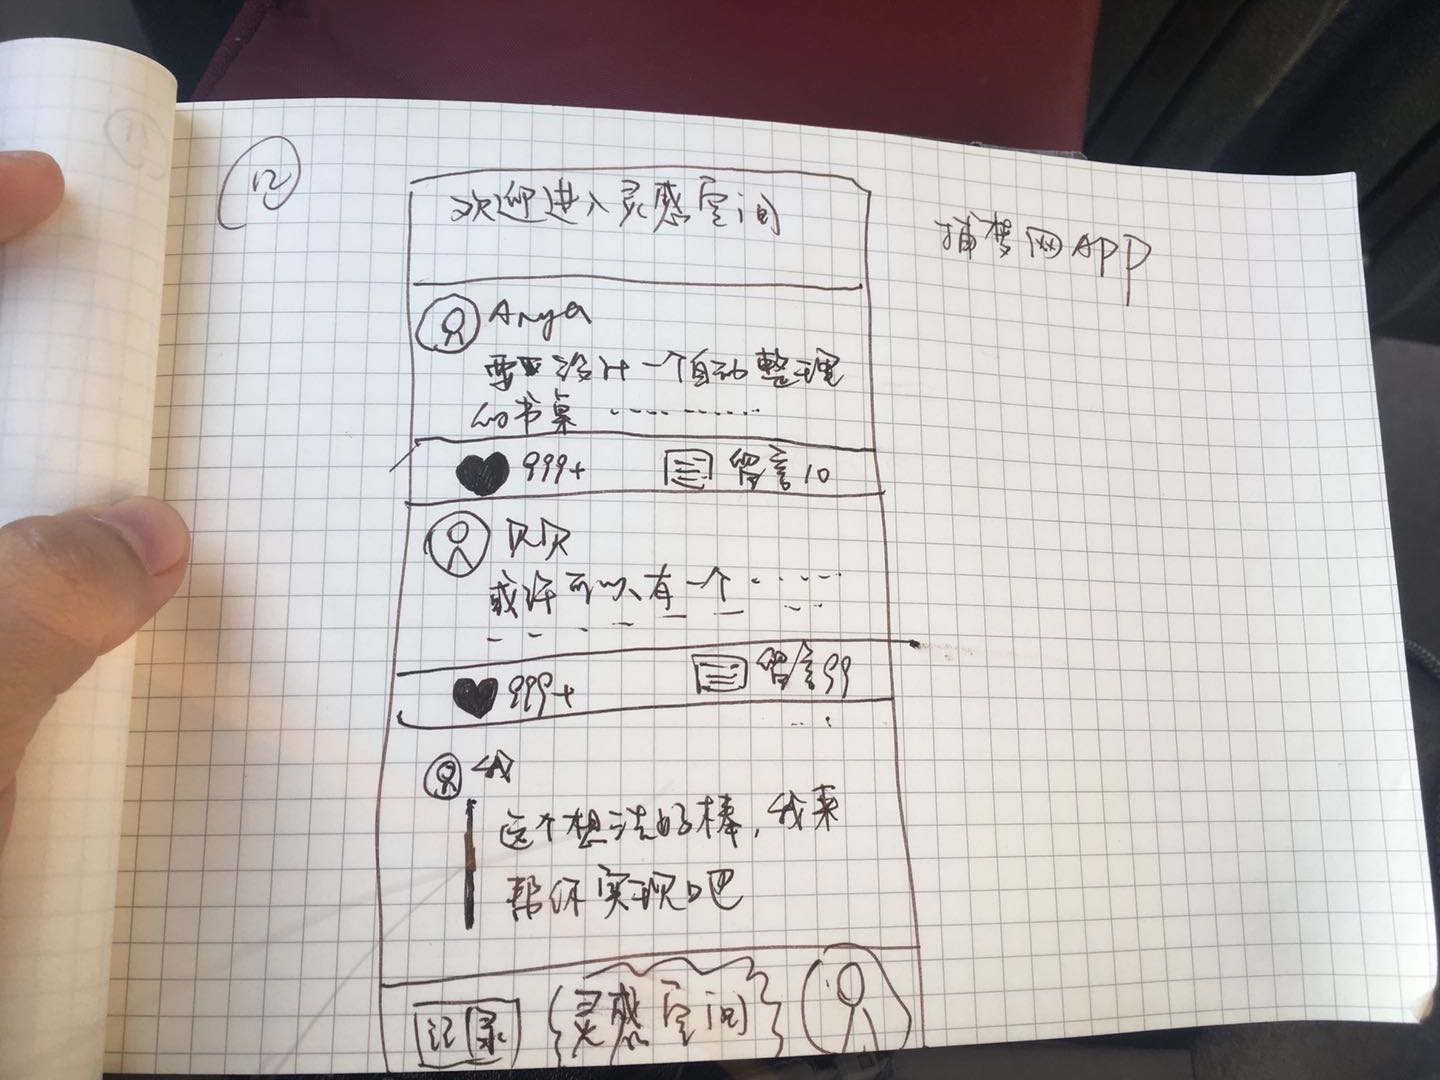 12
欢迎进入灵感空间
捕梦网APP
Anya
要设计一个自动整理
的书桌 ............
999+ 留言10
贝贝
或许可以有一个 ......
999+ 留言99
我
这个想法好棒，我来
帮你实现吧
记录 灵感空间